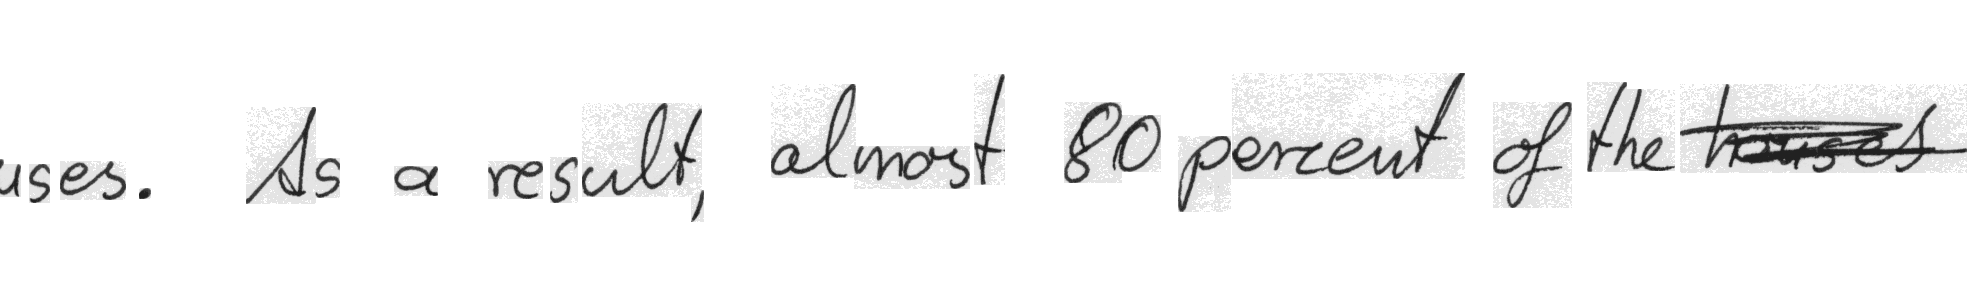 uses. As a result, almost 80 percent of the